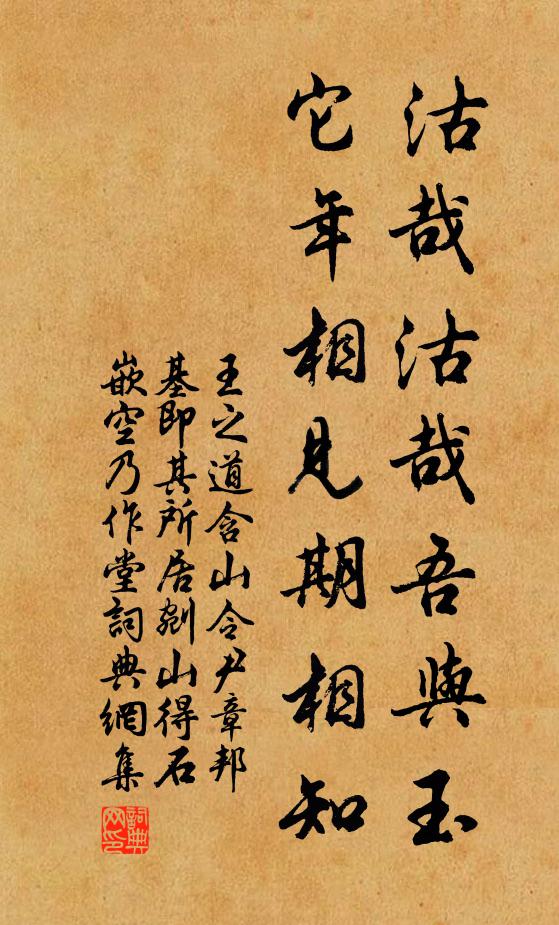 沽哉沽哉吾與玉
它年相見期相知
王之道含山令尹章邦
基即其所居剜山得石
嵌空乃作堂詞典網集
詞典
网印